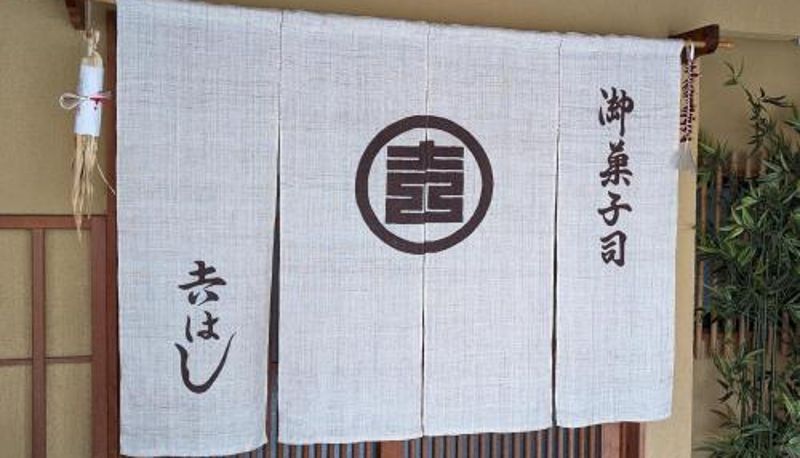 御菓子司
吉はし